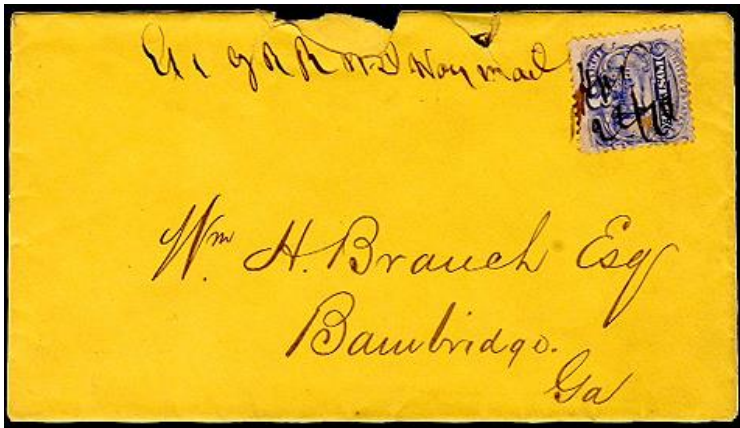 G R R No 2 Way mail
Wm H. Branch Esq
Bainbridge.
Ga